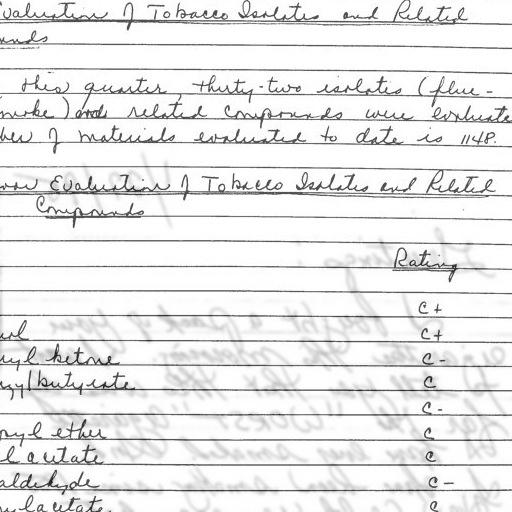 Evaluation of Tobacco Isolates and Related
unds
this quarter, thirty-two isolates (flue-
smoke) and related compounds were evaluate
ber of materials evaluated to date is 1148.
Evaluation of Tobacco Isolates and Related
Compounds
Rating
C+
C+
yl ketone C-
butyrate C
C-
pyl ether C
l acetate C
aldehyde C-
yl acetate C